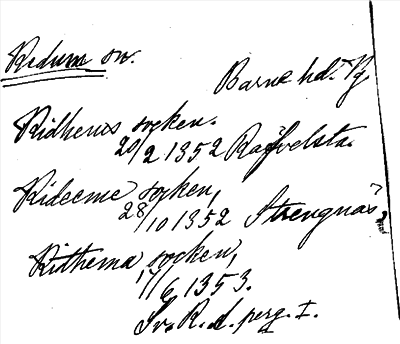 Ridum sn.
Barne hd. Vg
Ridhems socken.
20/2 1352 Ragvelsta.
Rideeme socken,
28/10 1352 Strengnäs,
Ridhema socken,
17/6 1353.
Sv. R. A. perg. I.